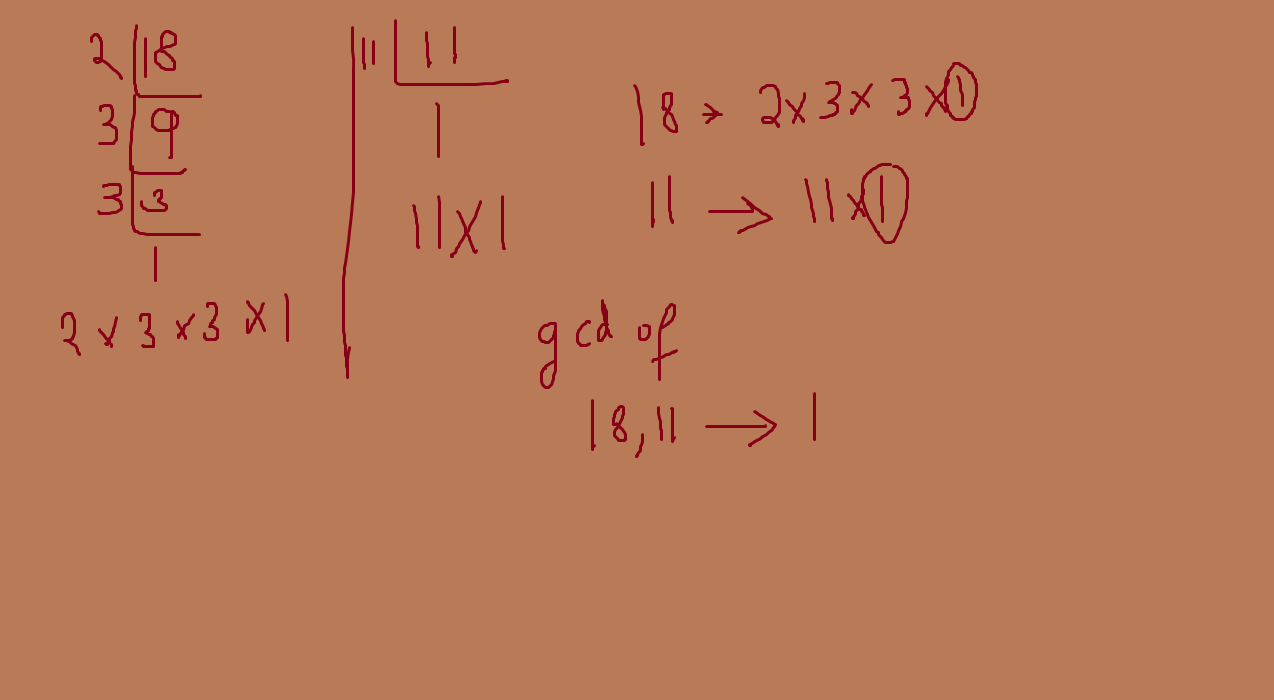 2 | 18
3 | 9
3 | 3
1
2 x 3 x 3 x 1
11 | 11
1
11 x 1
18 → 2 x 3 x 3 x 1
11 → 11 x 1
gcd of
18, 11 → 1